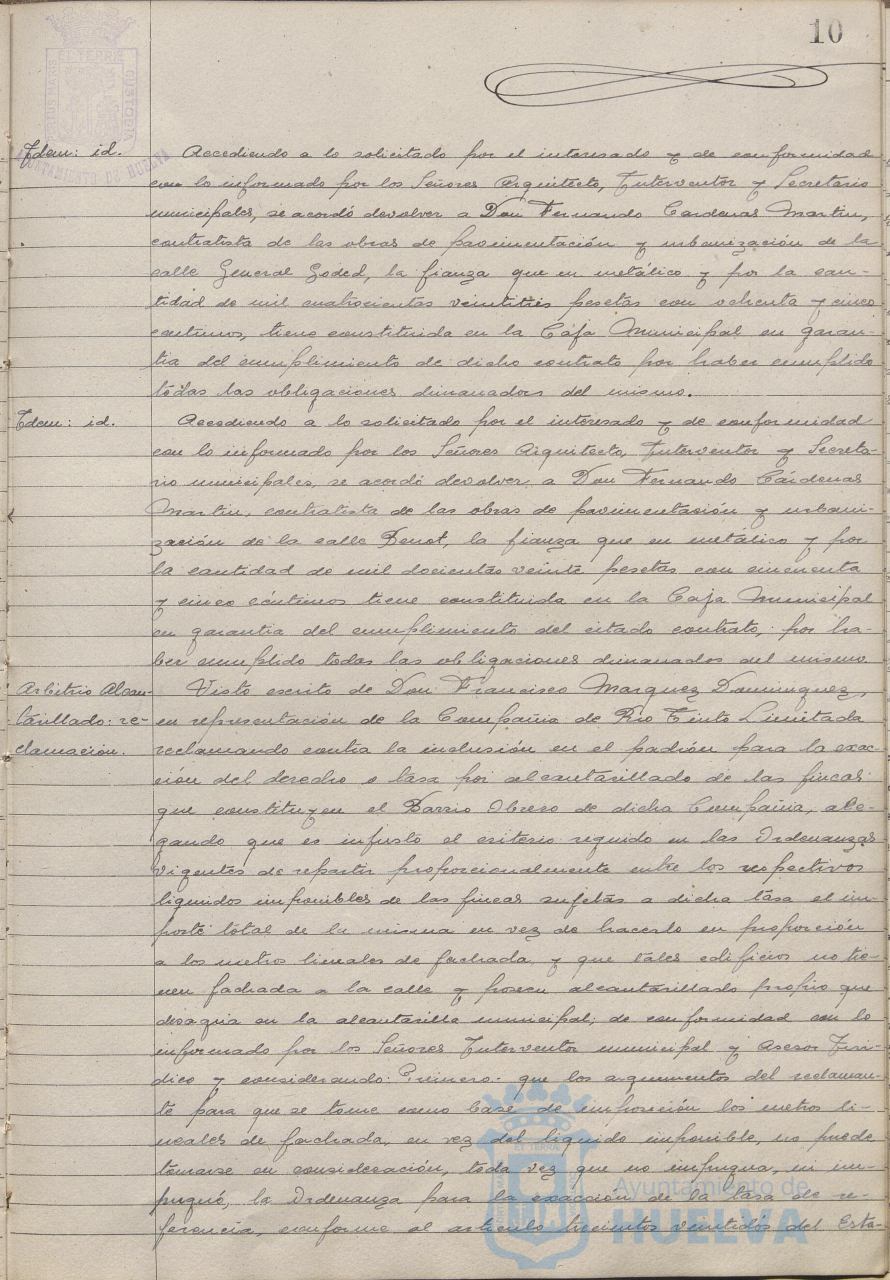 10
PORTUS MARIS
ET TERRE
CUSTODIA
AYUNTAMIENTO DE HUELVA
Idem: id.
Accediendo a lo solicitado por el interesado y de conformidad
con lo informado por los Señores Arquitecto, Interventor y Secretario
municipales, se acordó devolver a Don Fernando Cardenas Martin,
contratista de las obras de pavimentación y urbanización de la
calle General Goded, la fianza que en metálico y por la can-
tidad de mil cuatrocientas veintitres pesetas con ochenta y cinco
centimos, tiene constituida en la Caja Municipal en garan-
tia del cumplimiento de dicho contrato por haber cumplido
todas las obligaciones dimanadas del mismo.
Idem: id.
Accediendo a lo solicitado por el interesado y de conformidad
con lo informado por los Señores Arquitecto, Interventor y Secreta-
rio municipales, se acordó devolver a Don Fernando Cárdenas
Martin, contratista de las obras de pavimentación y urbani-
zación de la calle Benot, la fianza que en metálico y por
la cantidad de mil docientas veinte pesetas con cincuenta
y cinco céntimos tiene constituida en la Caja Municipal
en garantia del cumplimiento del citado contrato, por ha-
ber cumplido todas las obligaciones dimanadas del mismo
Arbitrio Alcan-
tarillado: re-
clamación.
Visto escrito de Don Francisco Marquez Dominguez,
en representación de la Compañia de Rio Tinto Limitada
reclamando contra la inclusión en el padrón para la exac-
ción del derecho o tasa por alcantarillado de las fincas
que constituyen el Barrio Obrero de dicha Compañia, ale-
gando que es injusto el criterio seguido en las Ordenanzas
vigentes de repartir proporcionalmente entre los respectivos
liquidos imponibles de las fincas sujetas a dicha tasa el im-
porte total de la misma en vez de hacerlo en proporción
a los metros lineales de fachada, y que tales edificios no tie-
nen fachada a la calle y poseen alcantarillado propio que
desagua en la alcantarilla municipal; de conformidad con lo
informado por los Señores Interventor municipal y Asesor Juri-
dico y considerando: Primero. que los argumentos del reclaman-
te para que se tome como base de imposición los metros li-
neales de fachada, en vez del liquido imponible, no puede
tomarse en consideración, toda vez que no impugna, ni im-
pugnó, la Ordenanza para la exacción de la tasa de re-
ferencia, conforme al articulo trecientos veintidós del Esta-
Ayuntamiento de
HUELVA